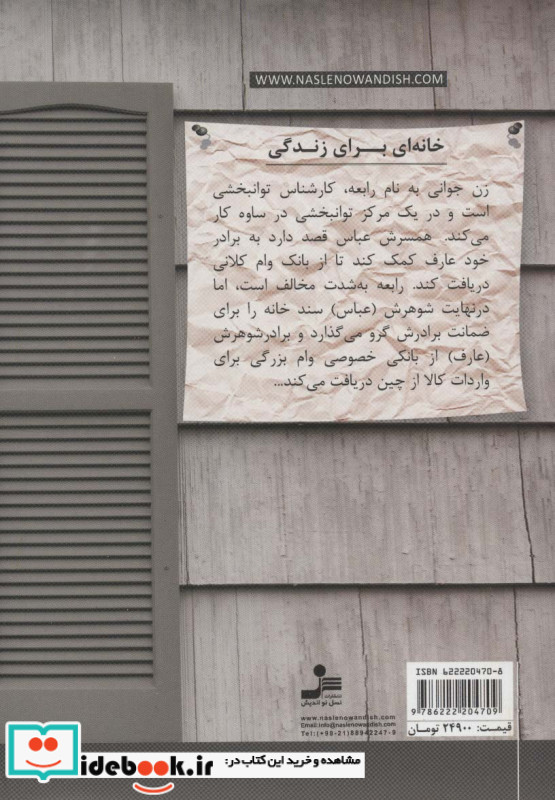 WWW.NASLENOWANDISH.COM
خانه‌ای برای زندگی
زن جوانی به نام رابعه، کارشناس توانبخشی
است و در یک مرکز توانبخشی در ساوه کار
می‌کند. همسرش عباس قصد دارد به برادر
خود عارف کمک کند تا از بانک وام کلانی
دریافت کند. رابعه به‌شدت مخالف است، اما
درنهایت شوهرش (عباس) سند خانه را برای
ضمانت برادرش گرو می‌گذارد و برادرشوهرش
(عارف) از بانکی خصوصی وام بزرگی برای
واردات کالا از چین دریافت می‌کند...
انتشارات
نسل نو اندیش
www.naslenowandish.com
Email:info@naslenowandish.com
Tel:(+98-21)88942247-9
ISBN 622220470-8
9 786222 204709
قیمت: ۲۴۹۰۰ تومان
idebook.ir
مشاهده و خرید این کتاب در: